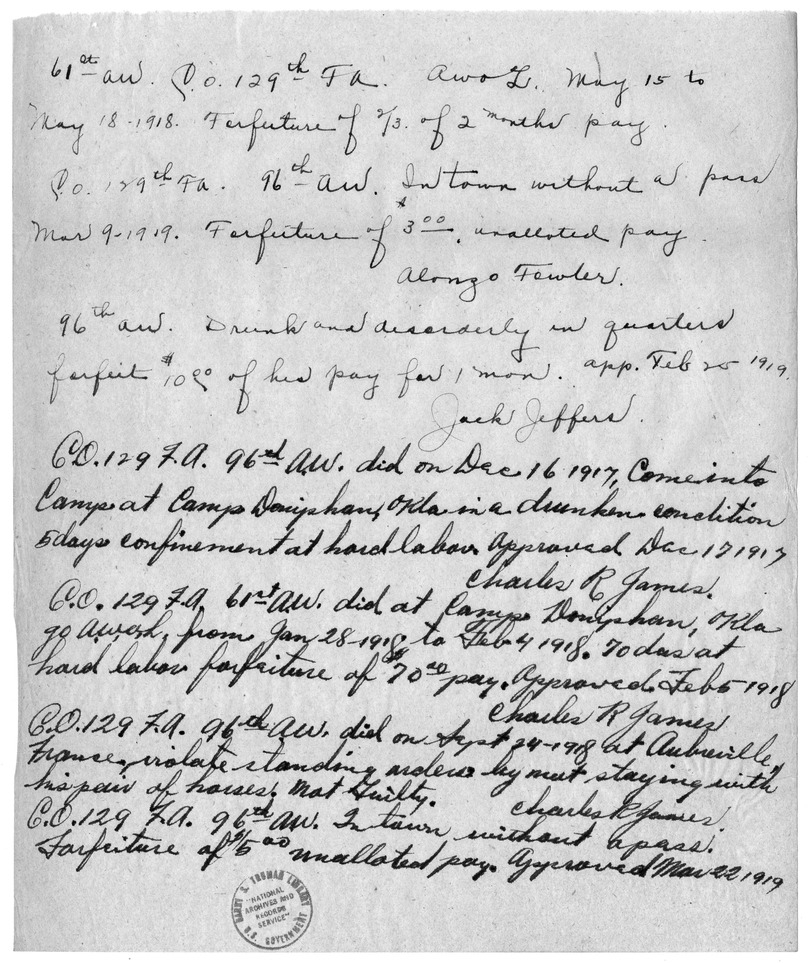 61st AW. C.O. 129th FA. AWOL. May 15 to
May 18-1918. Forfeiture of 2/3. of 2 months pay.
C.O. 129th FA. 96th AW. In town without a pass
Mar 9-1919. Forfeiture of $3.00, unalloted pay.
Alonzo Fowler.
96th AW. Drunk and disorderly in quarters
forfeit $10.00 of his pay for 1 mon. app. Feb 25 1919.
Jack Jeffers.
C.O. 129 F.A. 96th A.W. did on Dec 16 1917, Come into
Camp at Camp Doniphan, Okla in a drunken condition
5 days confinement at hard labor. Approved Dec 17 1917
Charles R James.
C.O. 129 F.A. 61st AW. did at Camp Doniphan, Okla
go A.W.O.L. from Jan 28-1918 to Feb 4 1918. 70 das at
hard labor forfeiture of $70.00 pay. Approved. Feb 5 1918
Charles R James
C.O. 129 F.A. 96th AW. did on Sept 24-1918 at Aubreville,
France, violate standing orders by not staying with
his pair of horses. Not Guilty.
Charles R James
C.O. 129 F.A. 96th AW. In town without a pass.
Forfeiture of $5.00 unalloted pay. Approved Mar 22 1919
HARRY S. TRUMAN LIBRARY
"NATIONAL
ARCHIVES AND
RECORDS
SERVICE"
U.S. GOVERNMENT